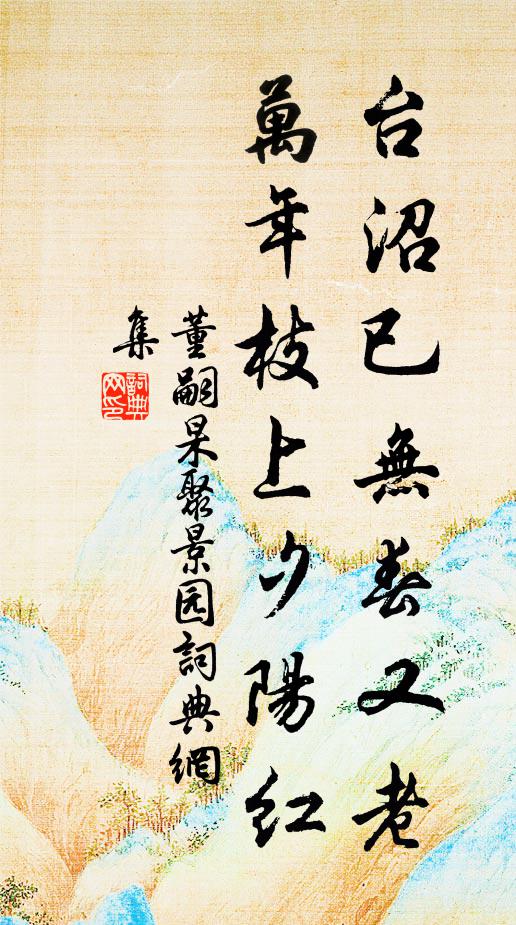 台沼已無春又老
萬年枝上夕陽紅
董嗣杲聚景园詞典網
集
詞典網印